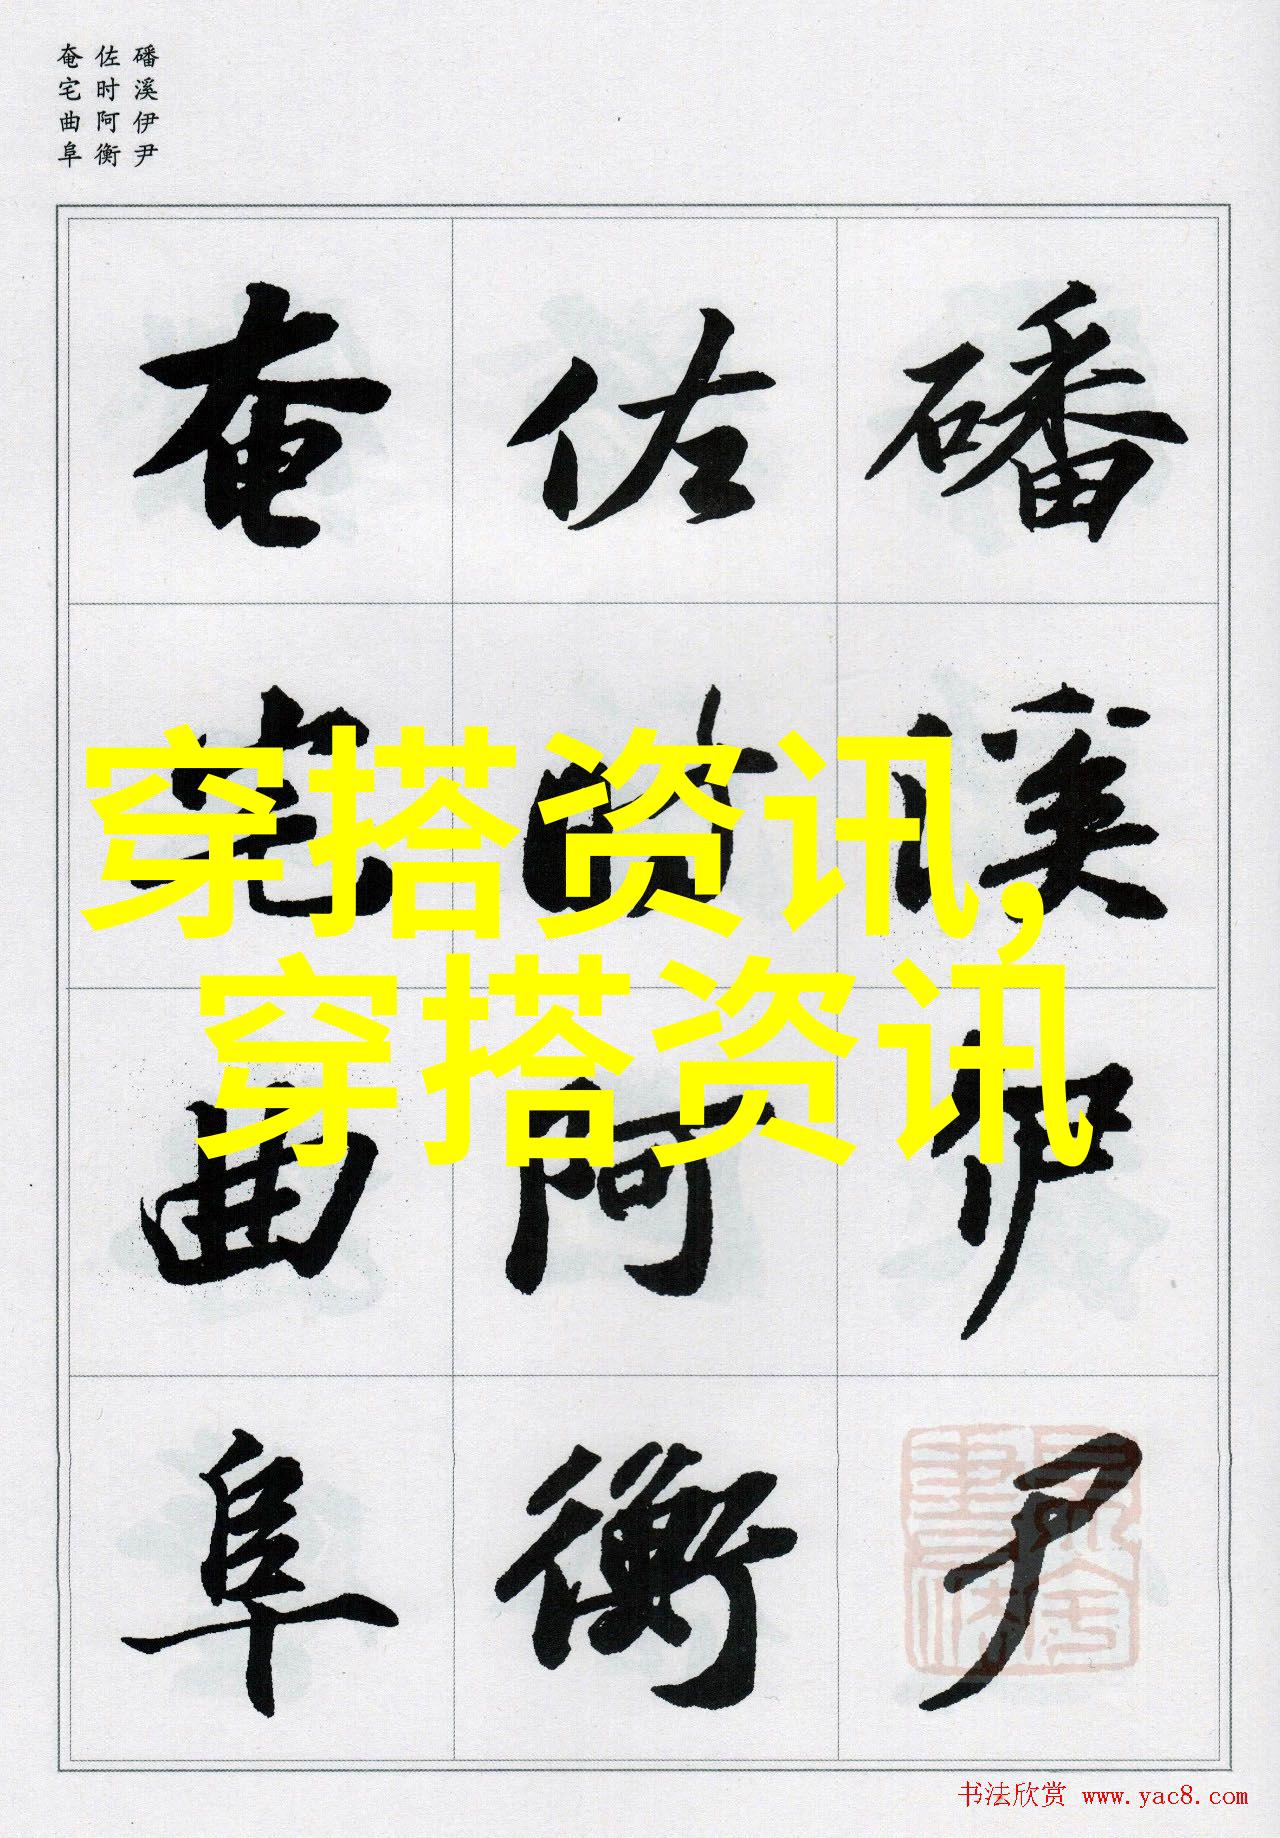 磻溪伊尹
佐时阿衡
奄宅曲阜
磻溪伊尹
佐时阿衡
奄宅曲阜
穿搭资讯,
穿搭资讯
书法欣赏 www.yac8.com